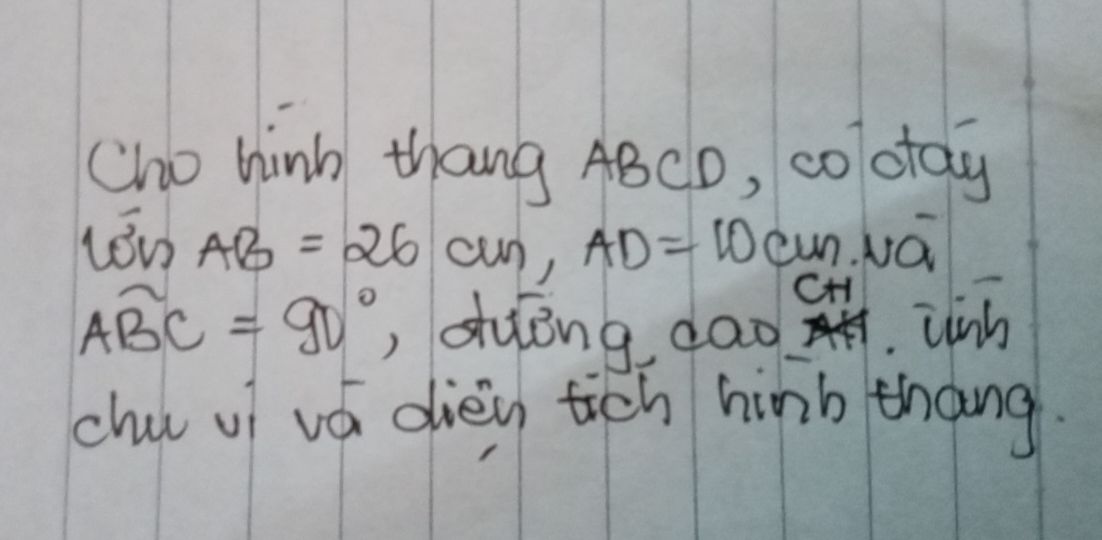 Cho hình thang ABCD, có đáy
lớn AB = 26 cm, AD = 10 cm. và
ABC = 90°, đường cao CH. Tính
chu vi và diện tích hình thang.